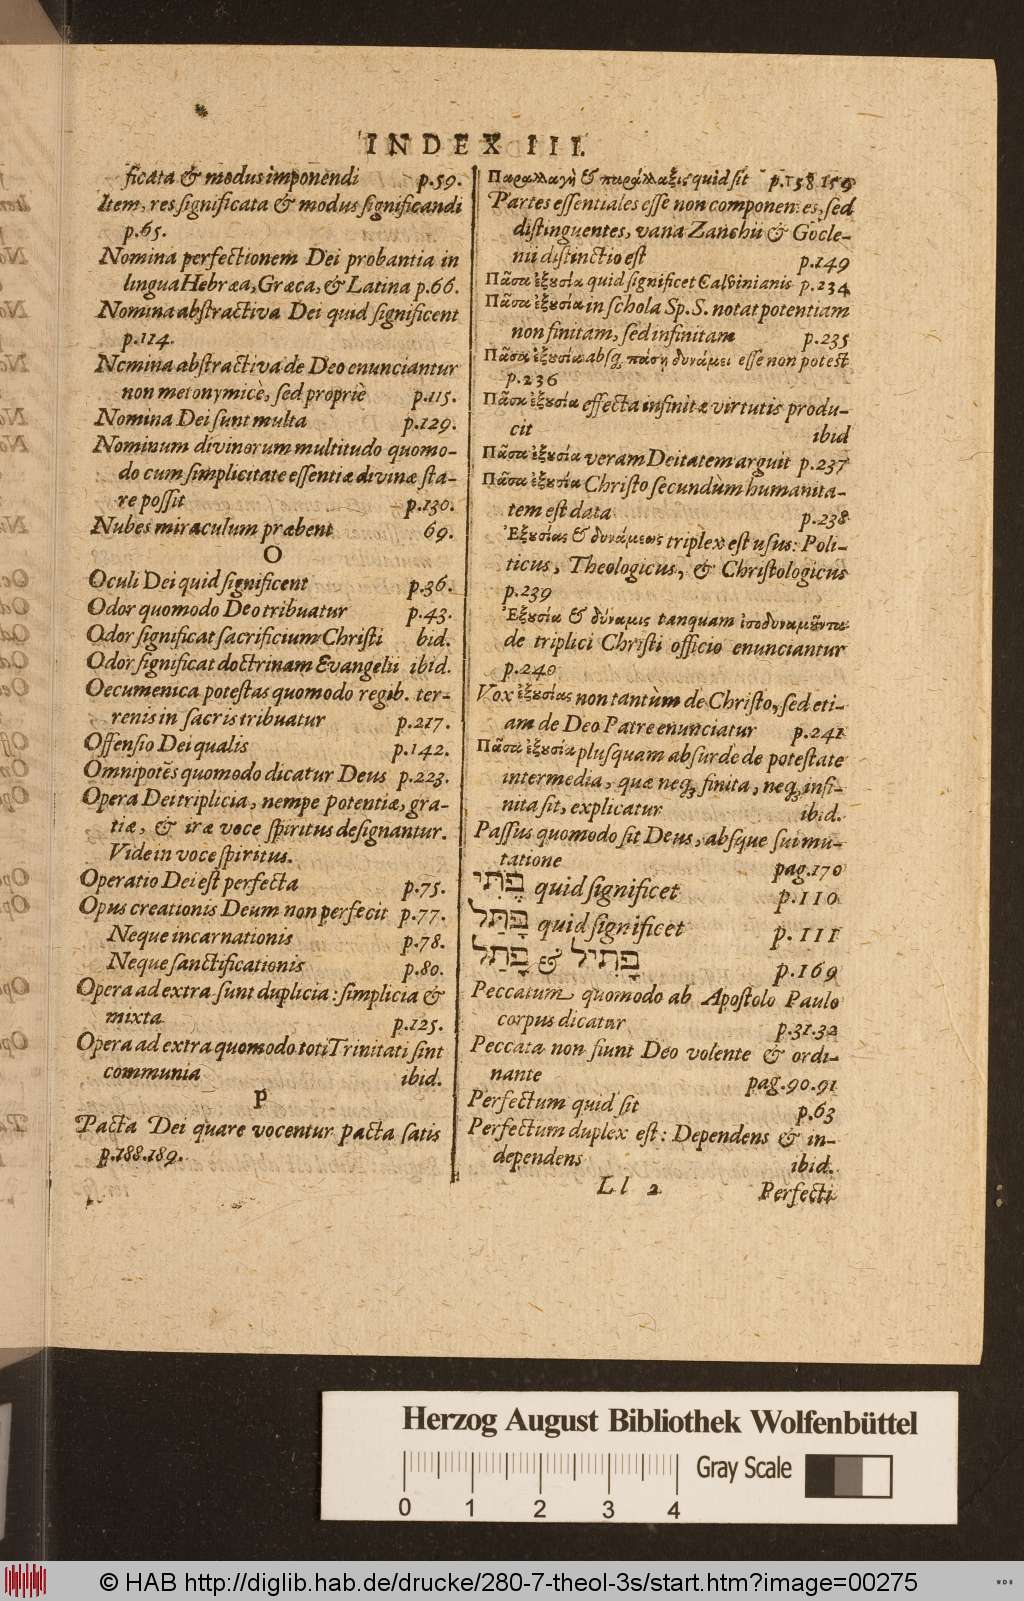 INDEX III.
ficata & modus imponendi p.59.
Item, res significata & modus significandi
p.65.
Nomina perfectionem Dei probantia in
lingua Hebræa, Græca, & Latina p.66.
Nomina abstractiva Dei quid significent
p.114.
Nomina abstractiva de Deo enunciantur
non metonymicè, sed propriè p.115.
Nomina Dei sunt multa p.129.
Nominum divinorum multitudo quomo-
do cum simplicitate essentiæ divinæ sta-
re possit p.130.
Nubes miraculum præbent 69.
O
Oculi Dei quid significent p.36.
Odor quomodo Deo tribuatur p.43.
Odor significat sacrificium Christi bid.
Odor significat doctrinam Evangelii ibid.
Oecumenica potestas quomodo regib. ter-
renis in sacris tribuatur p.217.
Offensio Dei qualis p.142.
Omnipotēs quomodo dicatur Deus p.223.
Opera Dei triplicia, nempe potentiæ, gra-
tiæ, & iræ voce spiritus designantur.
Vide in voce spiritus.
Operatio Dei est perfecta p.75.
Opus creationis Deum non perfecit p.77.
Neque incarnationis p.78.
Neque sanctificationis p.80.
Opera ad extra sunt duplicia: simplicia &
mixta p.125.
Opera ad extra quomodo toti Trinitati sint
communia ibid.
P
Pacta Dei quare vocentur pacta satis
p.188.189.
Παραλλαγὴ & παράλλαξις quid sit p.158.159
Partes essentiales esse non componentes, sed
distinguentes, vana Zanchii & Gocle-
nii distinctio est p.149
Πᾶσα ἐξουσία quid significet Calvinianis p.234
Πᾶσα ἐξουσία in schola Sp. S. notat potentiam
non finitam, sed infinitam p.235
Πᾶσα ἐξουσία absq; πάσῃ δυνάμει esse non potest
p.236
Πᾶσα ἐξουσία effecta infinitæ virtutis produ-
cit ibid
Πᾶσα ἐξουσία veram Deitatem arguit p.237
Πᾶσα ἐξουσία Christo secundùm humanita-
tem est data p.238
Ἐξουσίας & δυνάμεως triplex est usus: Poli-
ticus, Theologicus, & Christologicus
p.239
Ἐξουσία & δύναμις tanquam ἰσοδυναμοῦντα
de triplici Christi officio enunciantur
p.240
Vox ἐξουσίας non tantùm de Christo, sed eti-
am de Deo Patre enunciatur p.241
Πᾶσα ἐξουσία plusquam absurde de potestate
intermedia, quæ neq; finita, neq; infi-
nita sit, explicatur ibid.
Passus quomodo sit Deus, absque sui mu-
tatione pag.170
פֶּתִי quid significet p.110
פָּתַל quid significet p.111
פָּתַל & פָּתִיל p.169
Peccatum quomodo ab Apostolo Paulo
corpus dicatur p.31.32
Peccata non fiunt Deo volente & ordi-
nante pag.90.91
Perfectum quid sit p.63
Perfectum duplex est: Dependens & in-
dependens ibid.
Ll 2 Perfecti
Herzog August Bibliothek Wolfenbüttel
Gray Scale
0 1 2 3 4
© HAB http://diglib.hab.de/drucke/280-7-theol-3s/start.htm?image=00275